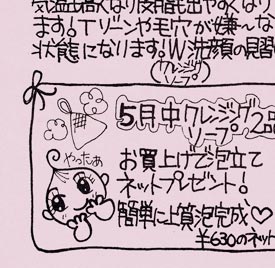 気温も高くなり皮脂も出やすくなり
ます！Tゾーンや毛穴が嫌〜な
状態になります。W洗顔の見習
クレンジング
ソープ
5月中クレンジングソープ2品
やったぁ
お買上げで泡立て
ネットプレゼント！
簡単に上質泡完成♡
¥630のネット